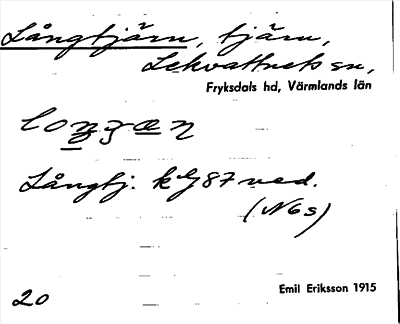 Långtjärn, tjärn,
Lekvattnets sn,
Fryksdals hd, Värmlands län
Långtj. k 87 ned.
(N6s)
Emil Eriksson 1915
20